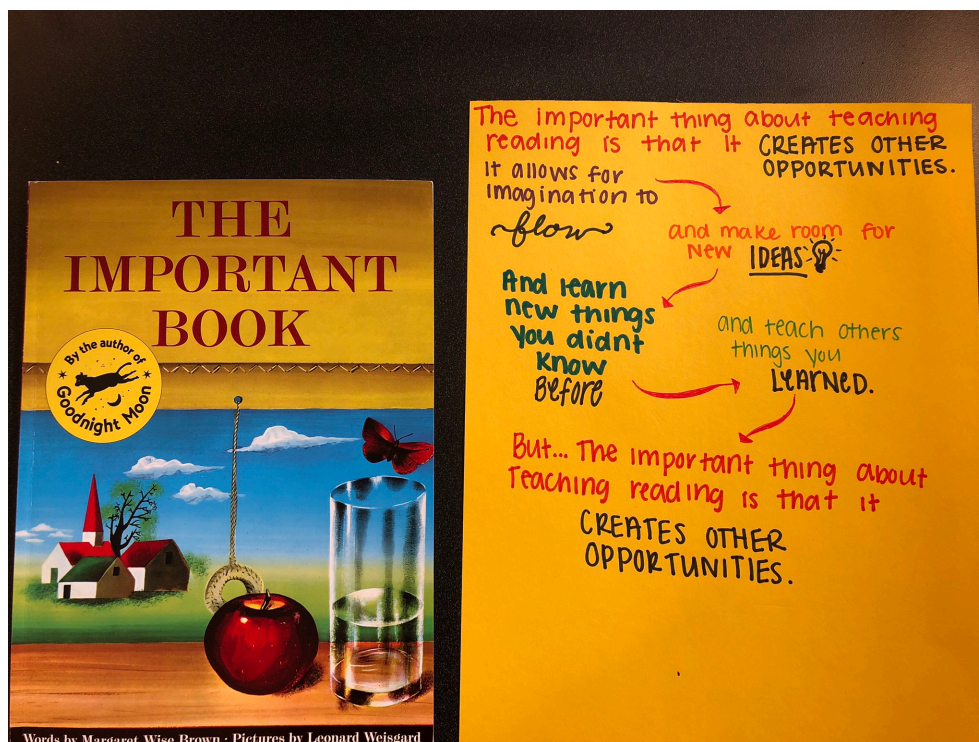 THE
IMPORTANT
BOOK
By the author of
Goodnight Moon
Words by Margaret Wise Brown · Pictures by Leonard Weisgard
The important thing about teaching
reading is that it CREATES OTHER
OPPORTUNITIES.
It allows for
imagination to
flow
and make room for
New IDEAS
And learn
new things
You didnt
Know
Before
and teach others
things you
LEARNED.
But... The important thing about
Teaching reading is that it
CREATES OTHER
OPPORTUNITIES.